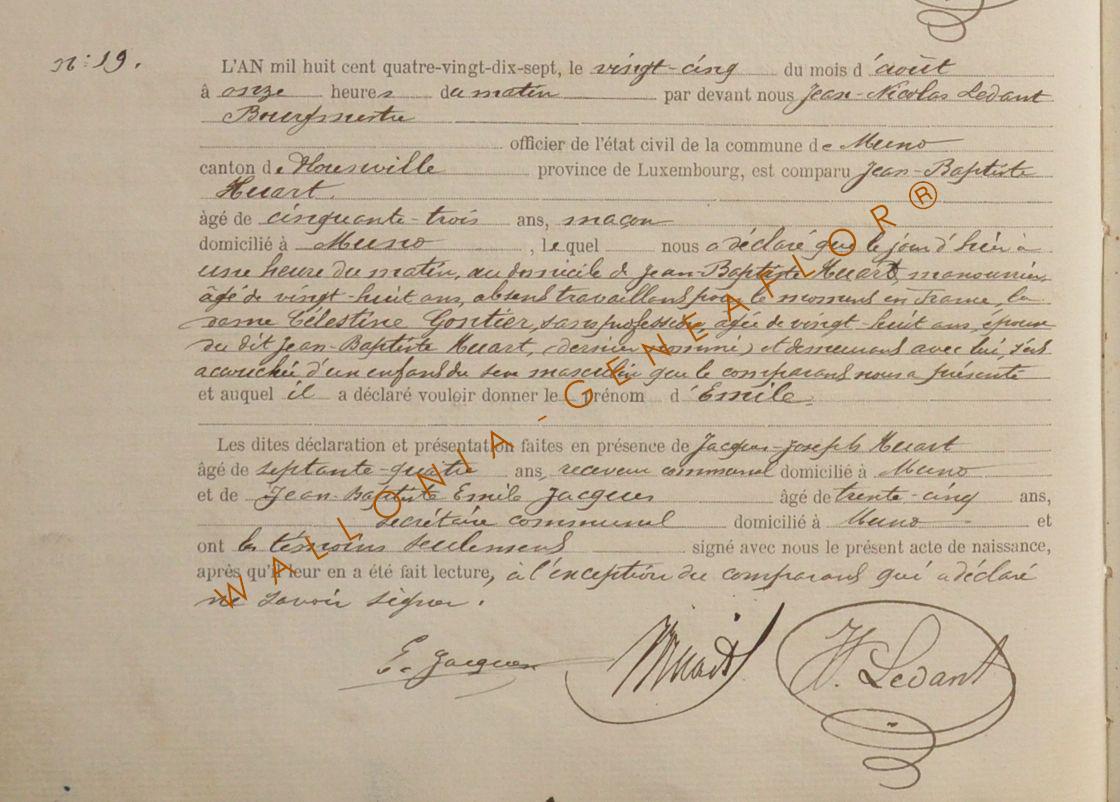 n: 19.
L'AN mil huit cent quatre-vingt-dix-sept, le vingt-cinq du mois d'août
à onze heures du matin par devant nous Jean-Nicolas Ledant
Bourgmestre
officier de l'état civil de la commune de Muno
canton de province de Luxembourg, est comparu Jean-Baptiste
Huart.
âgé de cinquante-trois ans, maçon
domicilié à Muno, lequel nous a déclaré que le jour d'hier à
une heure du matin, au domicile de Jean-Baptiste Huart, manouvrier,
âgé de vingt-huit ans, absent travaillant pour le moment en France, la
dame Célestine Gontier, sans profession, agée de vingt-huit ans, épouse
du dit Jean-Baptiste Huart, (dernier nommé) et demeurant avec lui, s'est
accouchée d'un enfant du sexe masculin que le comparant nous a présenté
et auquel il a déclaré vouloir donner le prénom d'Emile.
Les dites déclaration et présentation faites en présence de Jacques-Joseph Huart
âgé de septante-quatre ans, receveur communal domicilié à Muno
et de Jean-Baptiste Emile Jacques âgé de trente-cinq ans,
secrétaire communal domicilié à Muno et
ont les témoins seulement signé avec nous le présent acte de naissance,
après qu'il leur en a été fait lecture, à l'exception du comparant qui a déclaré
ne savoir signer.
E. Jacques Huart N. Ledant
WALLONIA-GENEAFLOR®